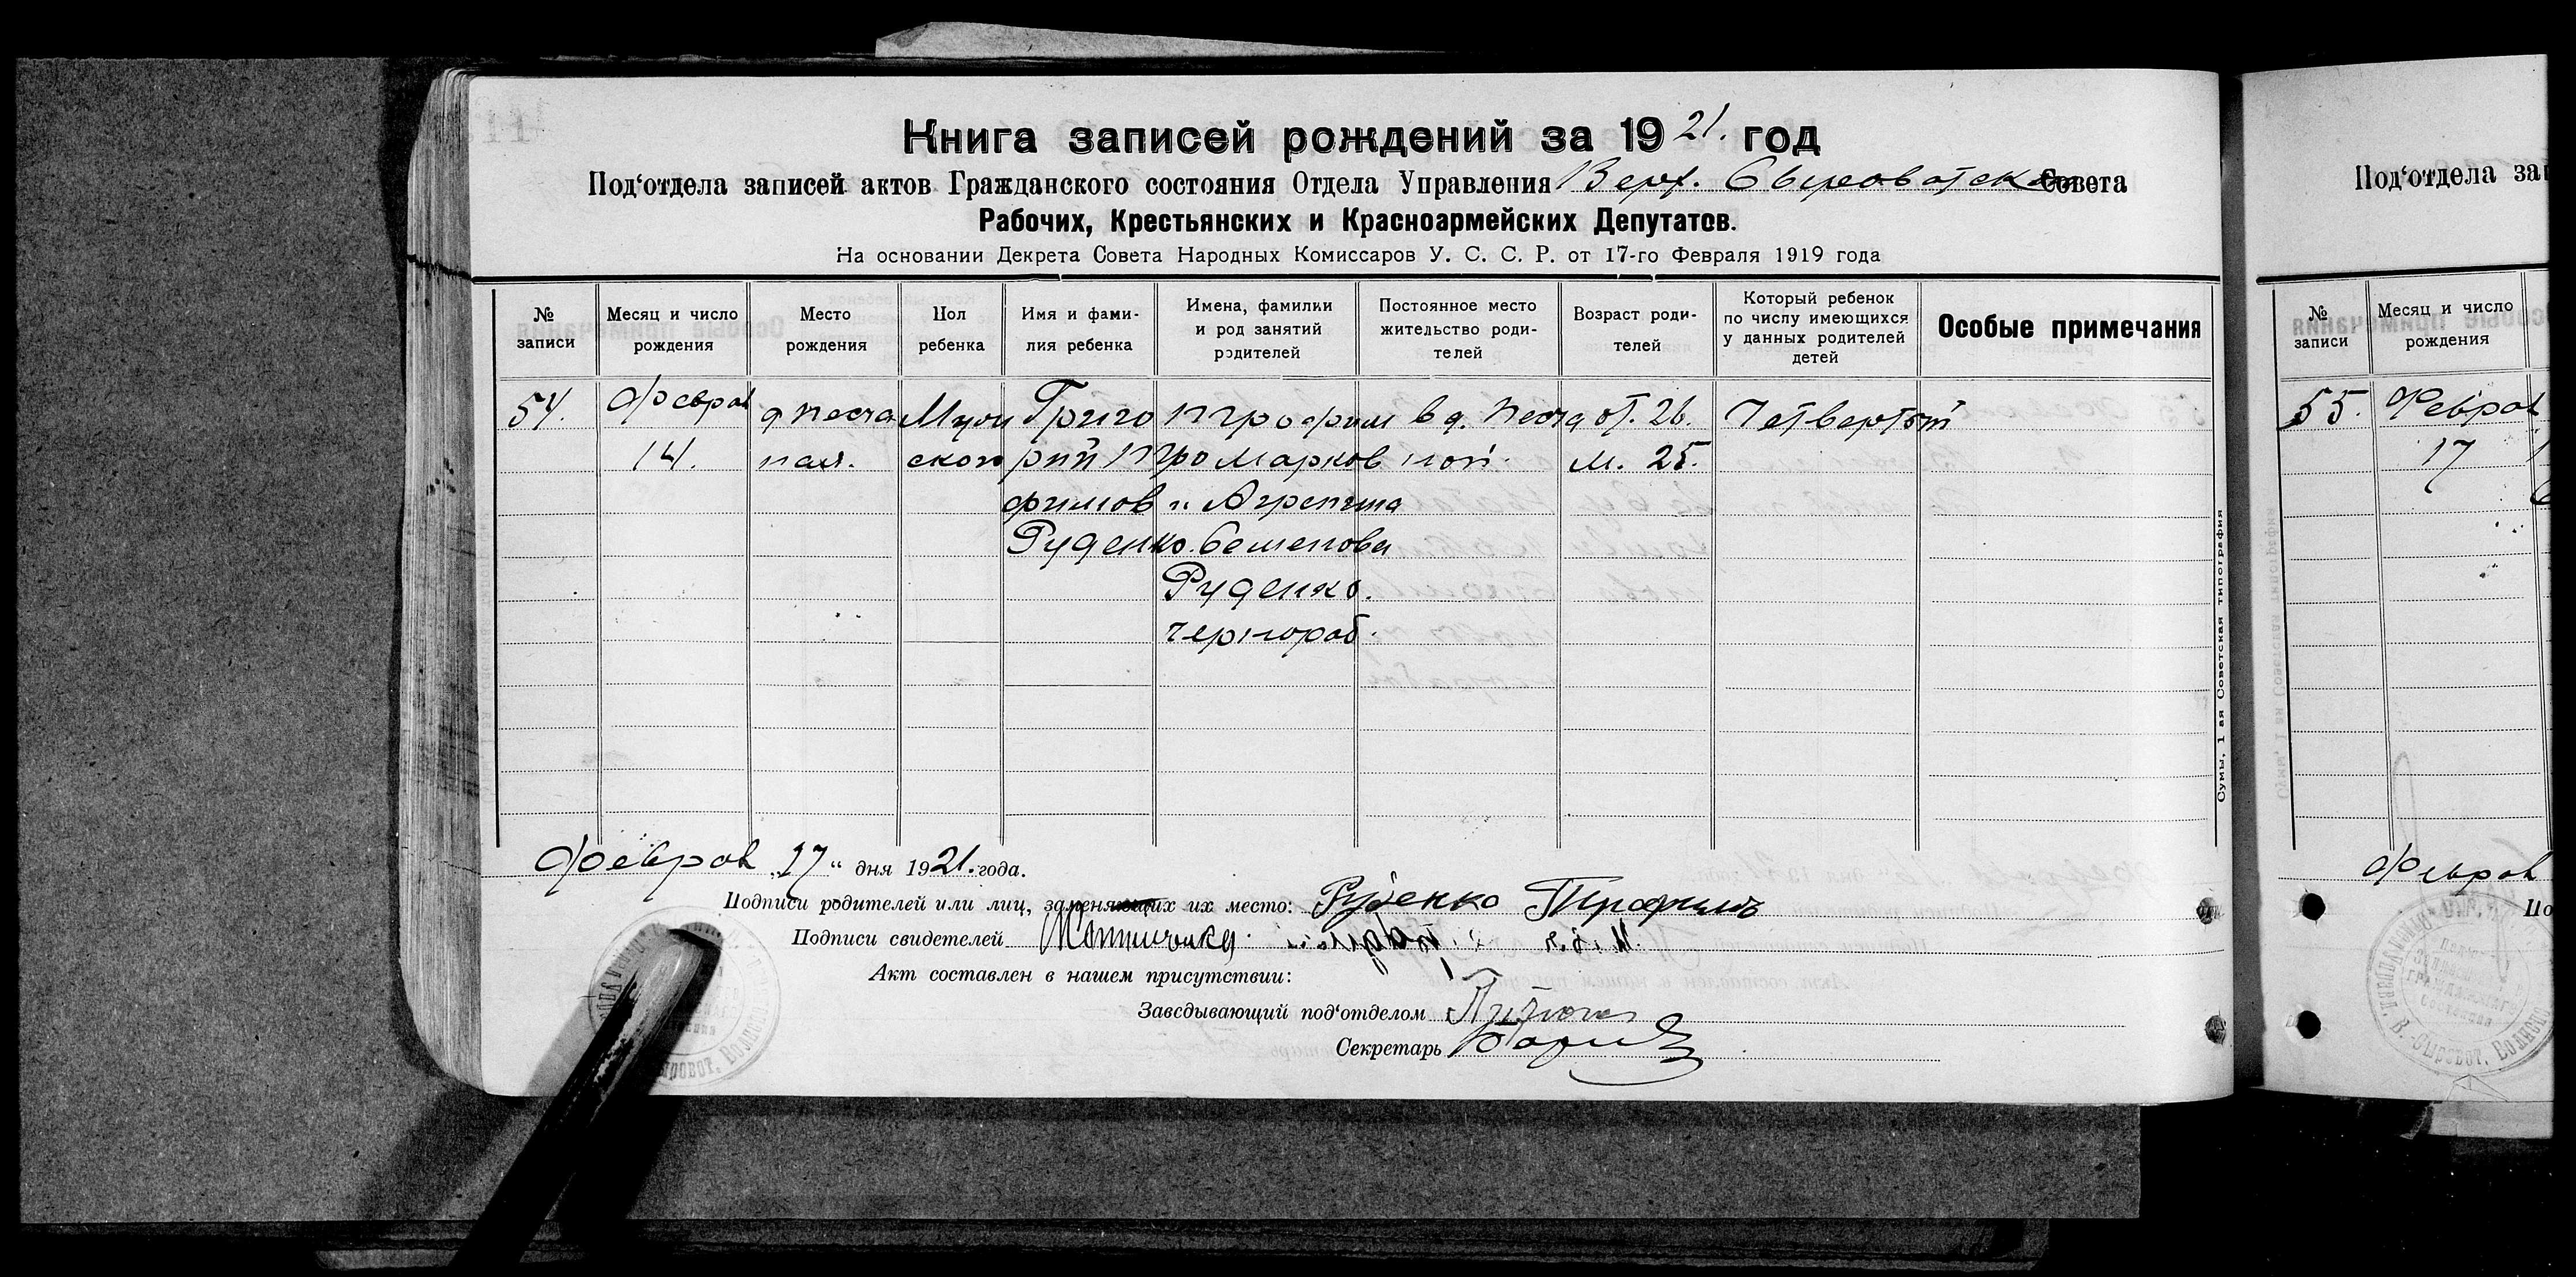 Книга записей рождений за 1921. год
Под‘отдела записей актов Гражданского состояния Отдела Управления Верх. Сыроватск Совета
Рабочих, Крестьянских и Красноармейских Депутатов.
На основании Декрета Совета Народных Комиссаров У. С. С. Р. от 17-го Февраля 1919 года
№ записи
Месяц и число рождения
Место рождения
Пол ребенка
Имя и фами-
лия ребенка
Имена, фамилии
и род занятий
родителей
Постоянное место
жительство роди-
телей
Возраст роди-
телей
Который ребенок
по числу имеющихся
у данных родителей
детей
Особые примечания
54. Феврал д Песча Муж Григо Трофим в д. Песча от. 26. Четвертый
14. ная. ской рий Тро Марков ной. м. 25.
фимов и Агрепина
Руденко. Семенова
Руденко.
Чернораб.
Феврал „17“ дня 1921. года.
Подписи родителей или лиц, заменяющих их место: Руденко Трофимъ
Подписи свидетелей
Акт составлен в нашем присутствии:
Заведывающий под‘отделом
Секретарь
Сумы, 1 ая Советская типография
Под‘отдела зап
№ записи
Месяц и число рождения
55. Феврал
17
Феврал
По